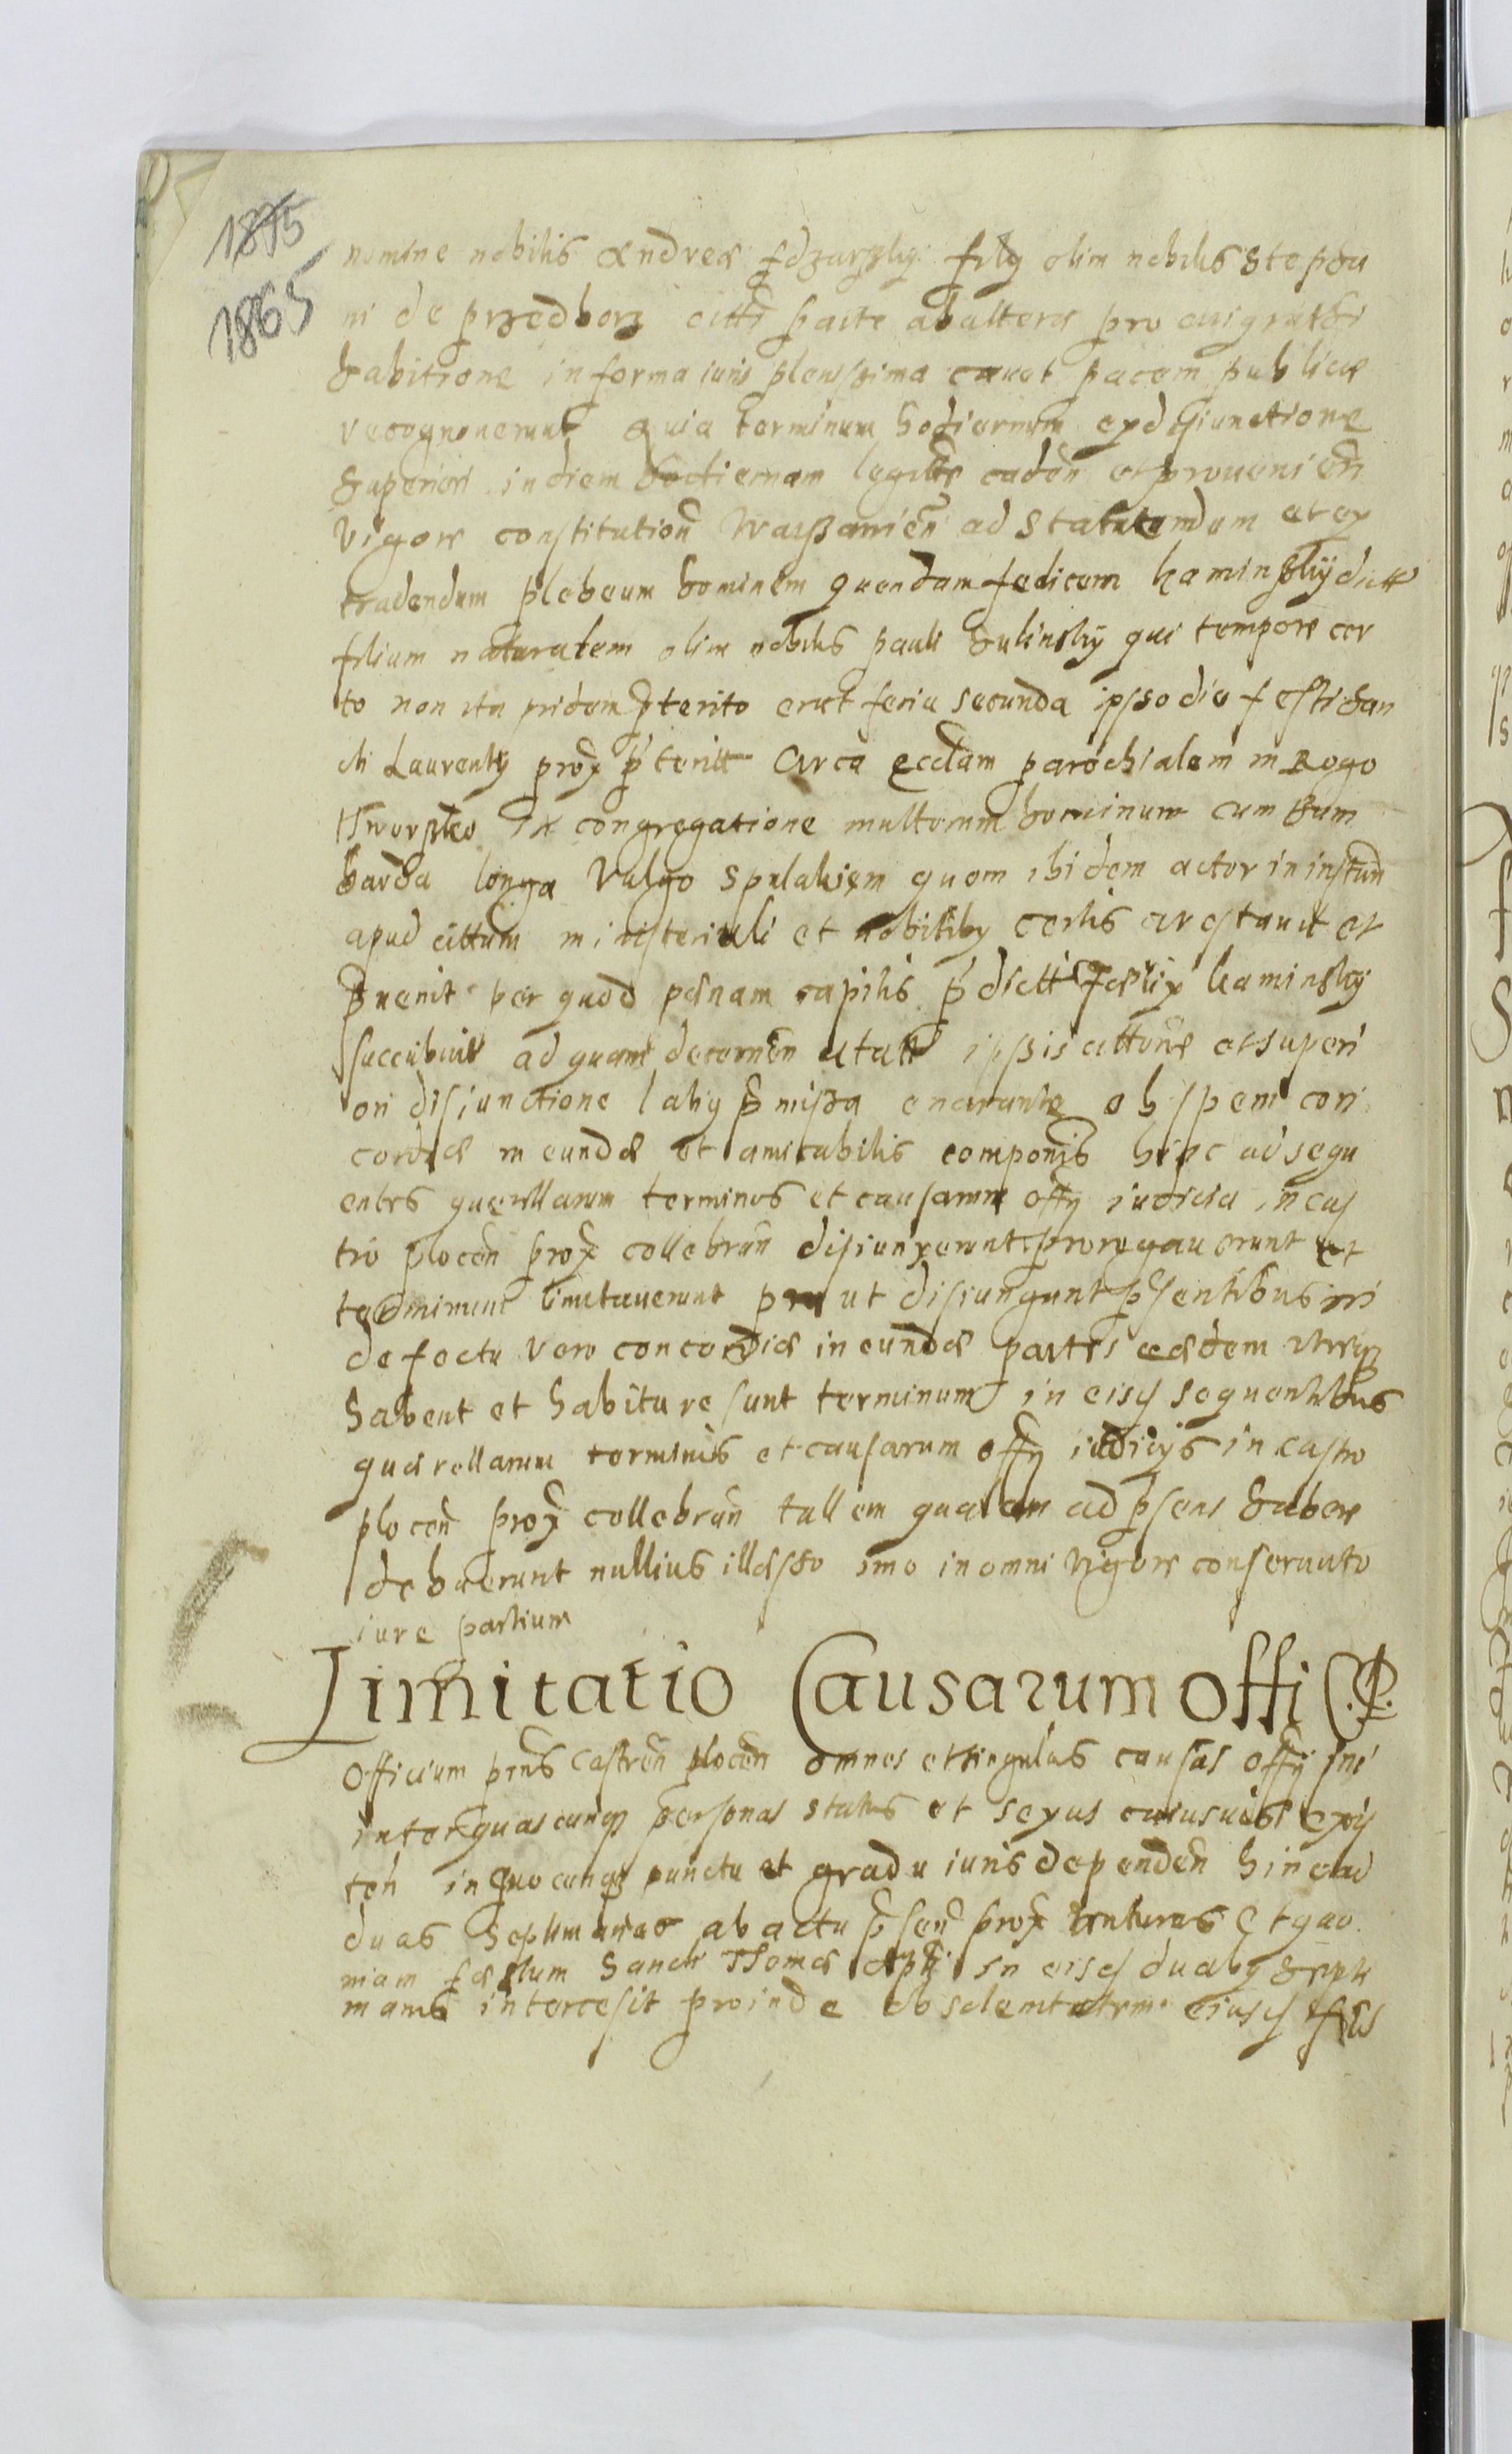 1875
1865
nomine nobilis Andreæ filÿ olim nobilis Stepha
ni de przedborz citti parte ab altera pro
habitione in forma iuris plenissima cauet pacem publicæ
recognouerunt Quia terminum hodiernum ex disiunctione
superiori in diem hodiernam caden et prouenien
Vigore constitution Warszauien ad statutendum et ex
tradendum plebeum hominem quendam felicem kaminskÿ dictt
filium naturalem olim nobilis pauli sulinskÿ qui tempore cer
to non ita pridem pterito erat feria secunda ipso die festi San
cti Laurentÿ prox pteritt Circa eccłam parochialem in Rogo
tworsko in congregatione multorum hominum cum bum
barda longa Vulgo quem ibidem actor in instan
apud cittum ministeriali et nobiliby certis arestauit et
puenit per quod pænam capitis pdictt fælix kaminskÿ
succubuit ad quam decernen ipsis cittone et superi
ori disiunctione latiy pmissa enarante ob spem con
cordiæ in eundæ et amicabilis componis hinc ad sequ
entes querellarum terminos et causarum offÿ iudicia in cas
tro plocen prox collebran disiunxerunt prorogauerunt et
terminum limitauerunt prout disiungunt psentibus in
defectu vero concordiæ in eundæ partes eædem utræq
habent et habituræ sunt terminum in eisd sequentibus
quærellarum terminis et causarum offÿ iudicÿs in castro
plocen prox collebran tallem qualem ad psens habere
debuerunt nullius illæso imo in omni vigore conseruato
iure partium
Limitatio Causarum offi C.P.
Officium pns Castren plocen omnes et singulas causas offÿ sui
inter quascunq personas status et sexus cuiusuis exis
ten in quocunq punctu et gradu iuris dependen hinc ad
duas septimanas ab actu psen prox venturas Et quo
niam fæstum Sancti Thomæ Apłi in eisd duaby septi
manis intercesit proinde ob solemitatem eiusd fæs